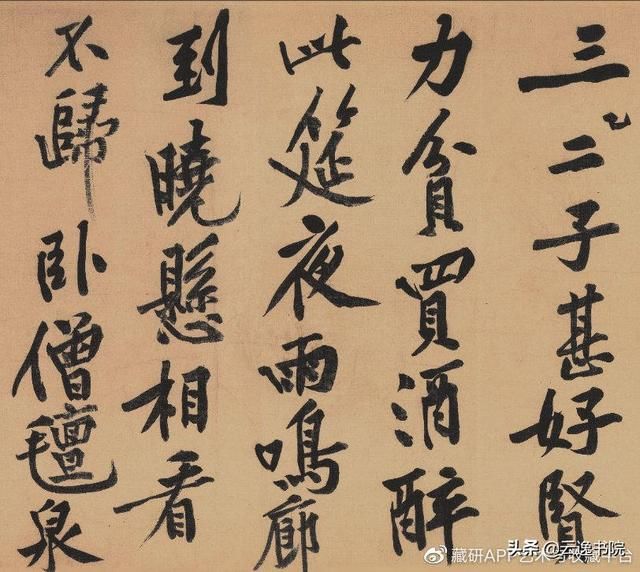 三二子甚好賢
力貧買酒醉
此筵夜雨鳴廊
到曉懸相看
不歸卧僧氈泉
头条 @云逸书院
藏研APP艺术与收藏平台